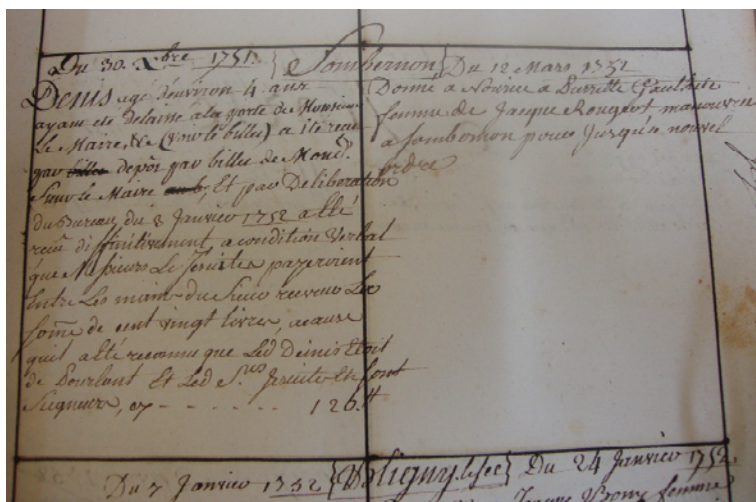 Du 30. Xbre 1751. } Sombernon } Du 12 Mars 1751
Denis agé d'environ 4 ans
ayant eté delaissé a la porte de Monsieur
Le Maire &c (voir le billet) a eté recu
par billet depôt par billet de Mons.
Sieur le Maire et par Deliberation
du Bureau du 8 Janvier 1752 a été
reçu diffinitivement, a condition Verbal
que Messieurs Les Jesuites payeroient
Entre Les mains du Sieur receveur La
some de cent vingt livres, a cause
quil a eté reconnu que Led Denis Etoit
de Et Led Srs Jesuites En sont
Seigneurs, cy - - - - - - 120.₶
Donné a Nourir a Pierrette Gaulthié
femme de Jacque Rougeot manouvrier
a Sombernon pour Jusqu'a nouvel
ordre
Du 7 Janvier 1752 } } Du 24 Janvier 1752
femme